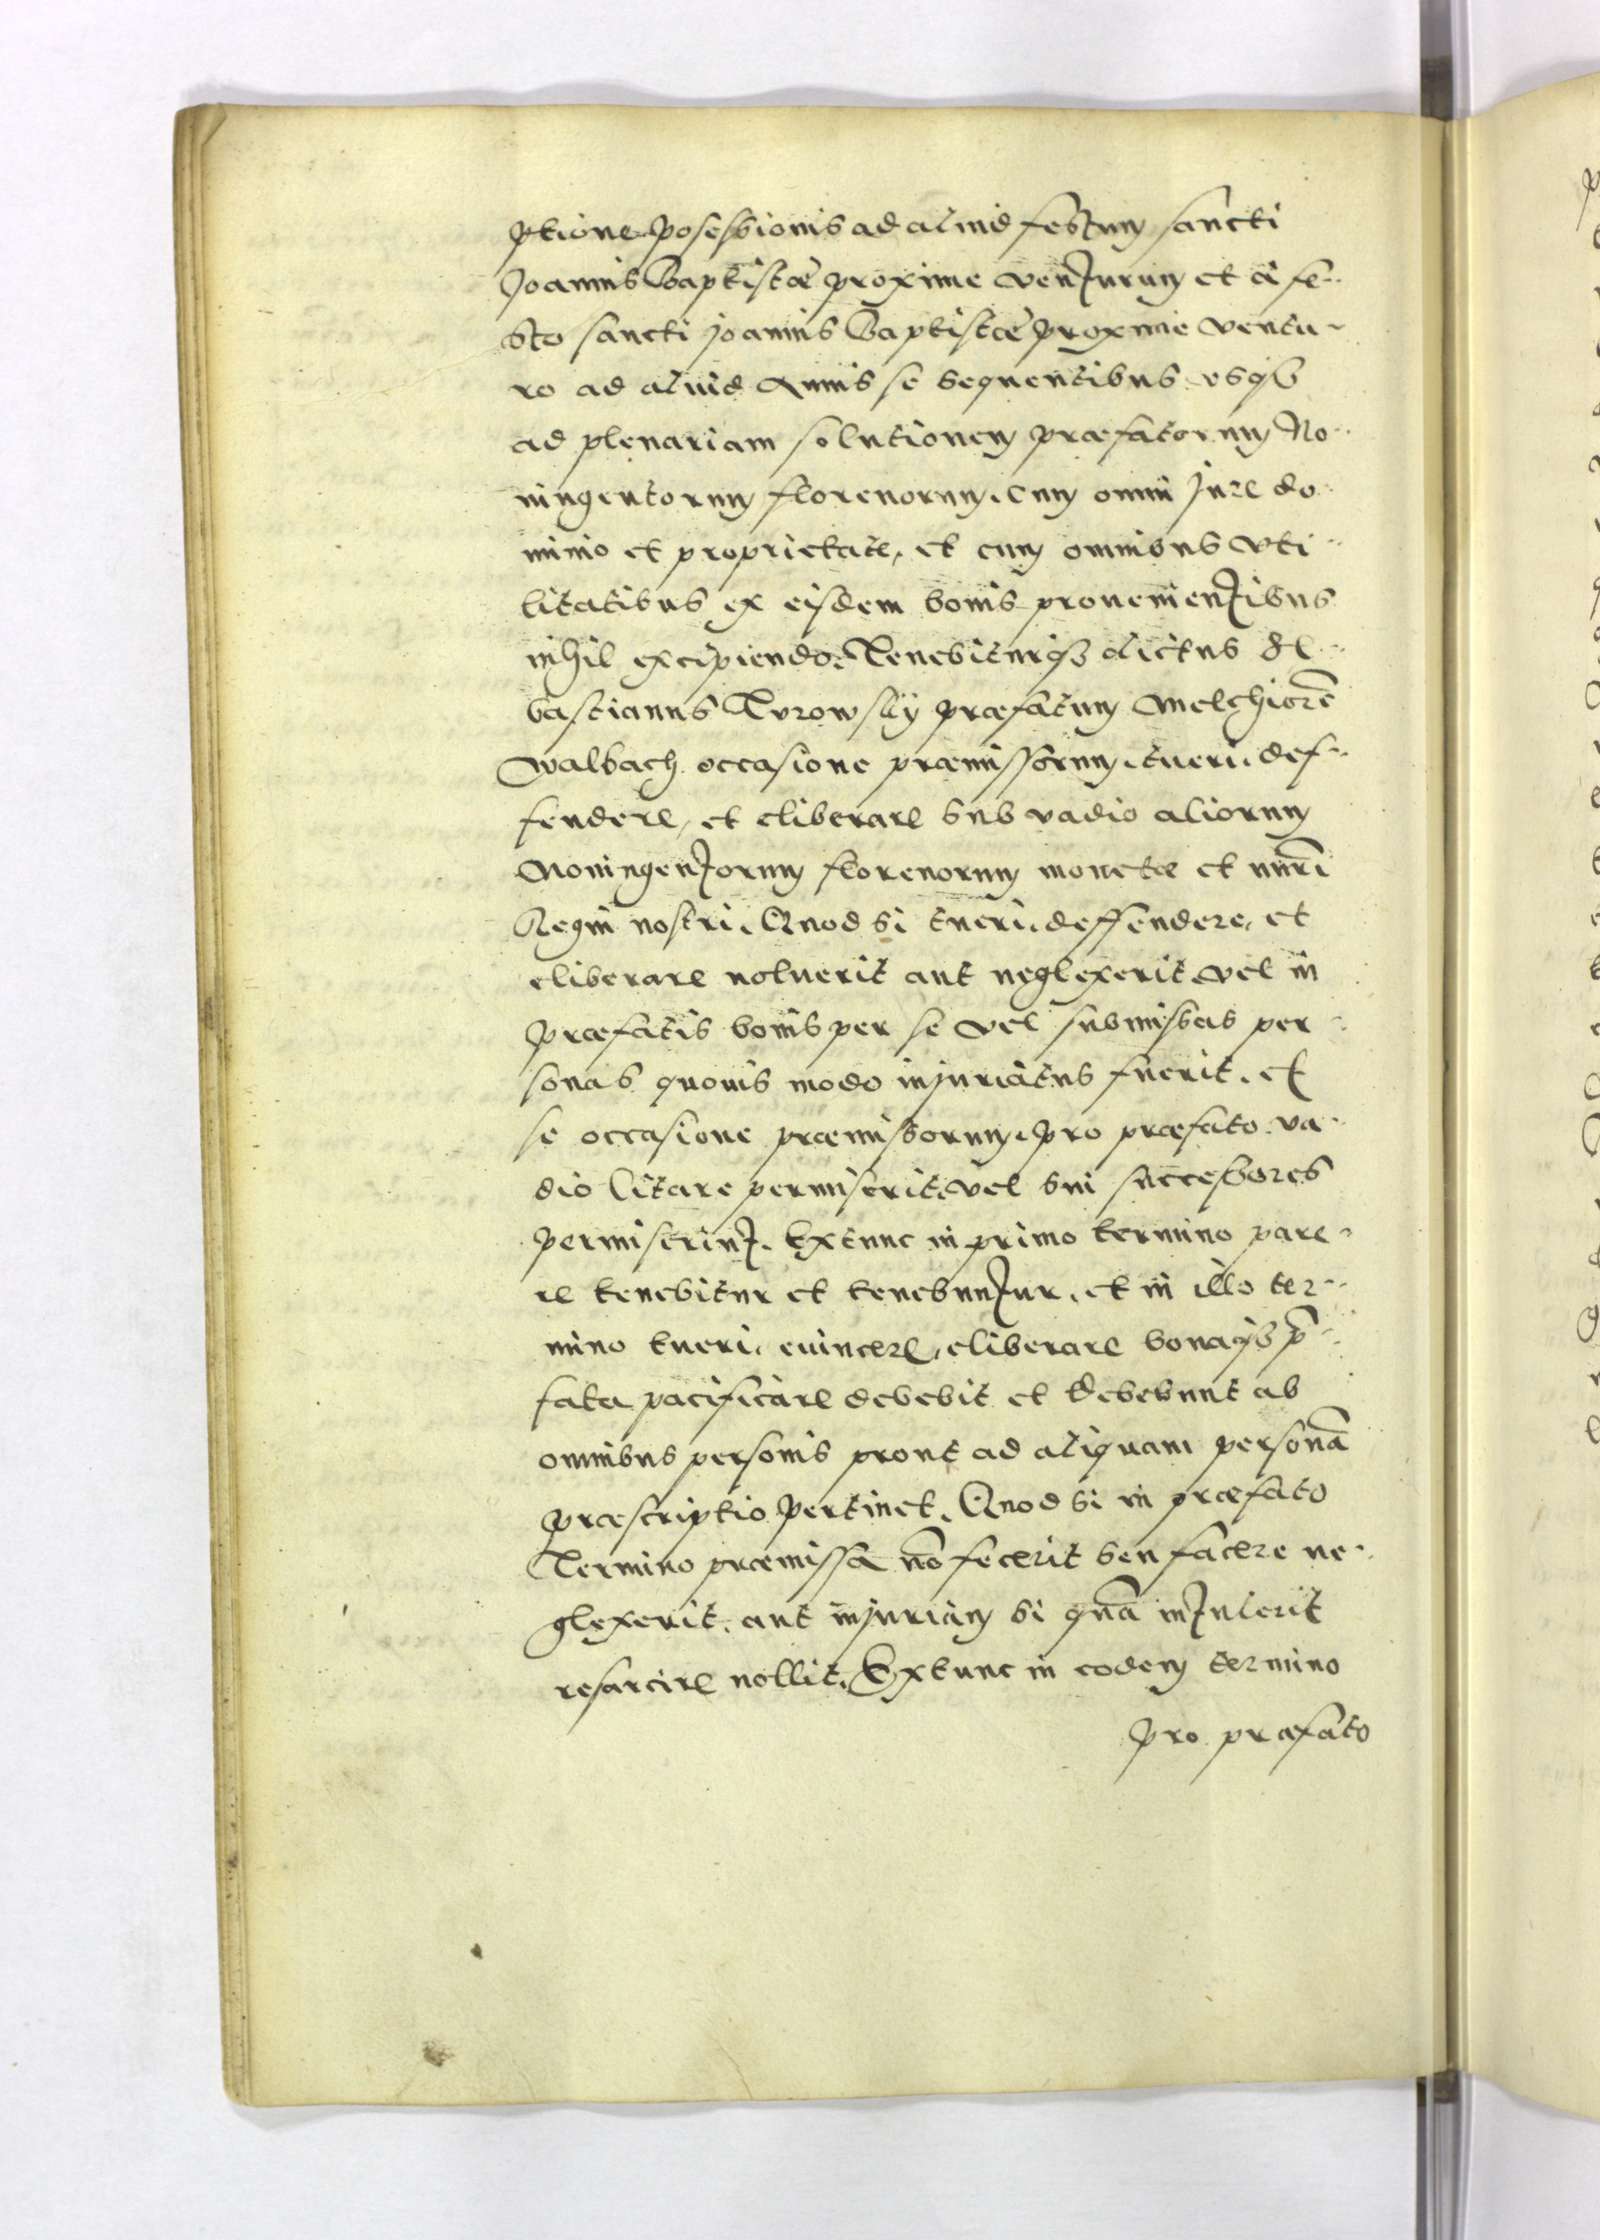 ptione possessionis ad aliud festum sancti
Joannis Baptistæ proxime venturum et à fe-
sto sancti joannis Baptistæ proxime ventu-
ro ad aliud annis se sequentibus usq3
ad plenariam solutionem præfatorum No-
ningentorum florenorum. Cum omni jure do-
minio et proprietate, et cum omnibus vti-
litatibus ex eisdem bonis provenientibus
nihil excipiendo. Tenebiturq3 dictus Se-
bastianus Turowsky præfatum Melchiorē
Walbach occasione præmissorum. tueri. def-
fendere, et eliberare sub vadio aliorum
Noningentorum florenorum monetæ et nūri
Regni nostri. Quod si tueri. deffendere, et
eliberare noluerit aut neglexerit vel in
præfatis bonis per se vel submissas per-
sonas quovis modo injuriatus fuerit. et
se occasione præmissorum. pro præfato va-
dio citare permiserit. vel sui successores
permiserint. Extunc in primo termino pare-
re tenebitur et tenebuntur. et in illo ter-
mino tueri, evincere, eliberare bonaq3 p̄-
fata pacificare debebit et debebunt ab
omnibus personis prout ad aliquam personā
præscriptio pertinet. Quod si in præfato
Termino præmissa nō fecerit seu facere ne-
glexerit. aut injuriam si quā intulerit
resarcire nollit. Extunc in eodem termino
pro præfato